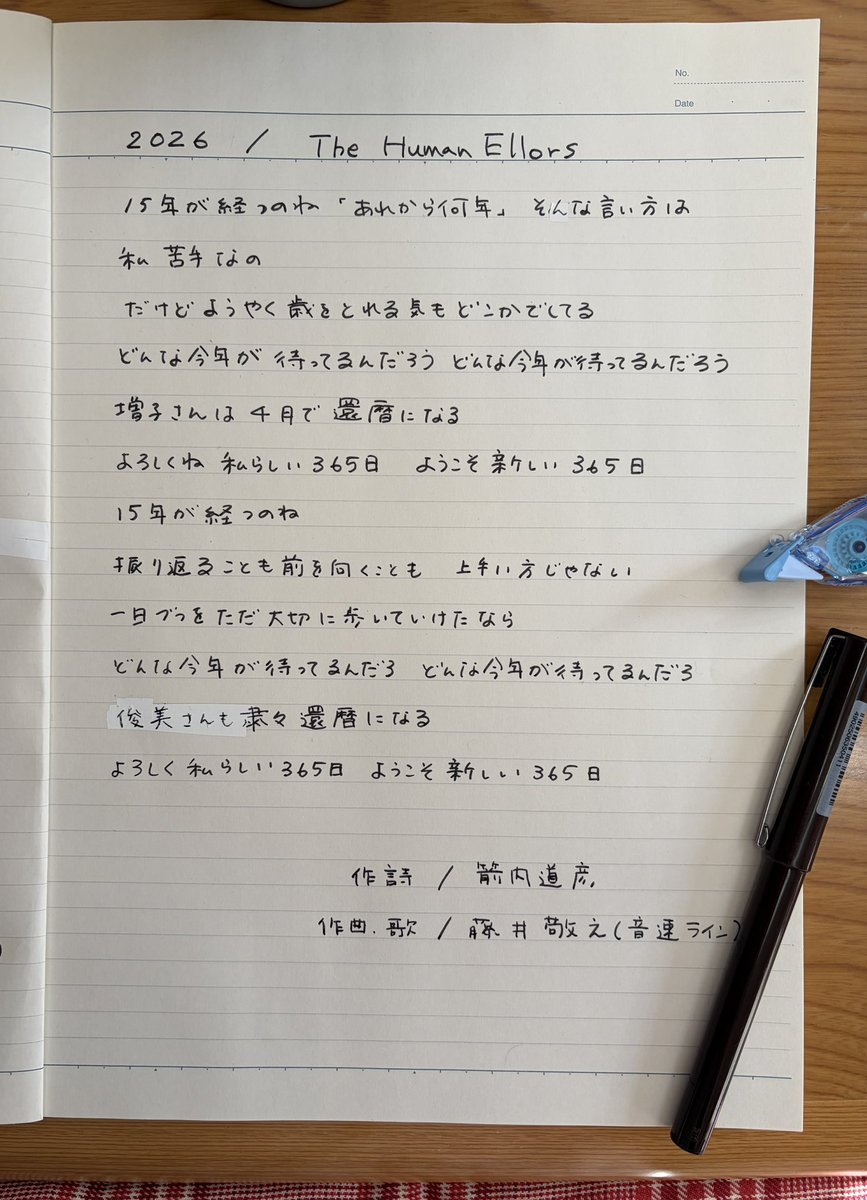 No.
Date
2026 / The Human Ellors
15年が経つのね「あれから何年」そんな言い方は
私 苦手なの
だけど ようやく歳をとれる気も どこかでしてる
どんな今年が待ってるんだろう どんな今年が待ってるんだろう
増子さんは 4月で 還暦になる
よろしくね 私らしい365日 ようこそ新しい365日
15年が経つのね
振り返ることも前を向くことも 上手い方じゃない
一日づつをただ大切に歩いていけたなら
どんな今年が待ってるんだろ どんな今年が待ってるんだろ
俊美さんも粛々還暦になる
よろしく 私らしい365日 ようこそ新しい365日
作詩 / 箭内道彦
作曲.歌 / 藤井敬之(音速ライン)